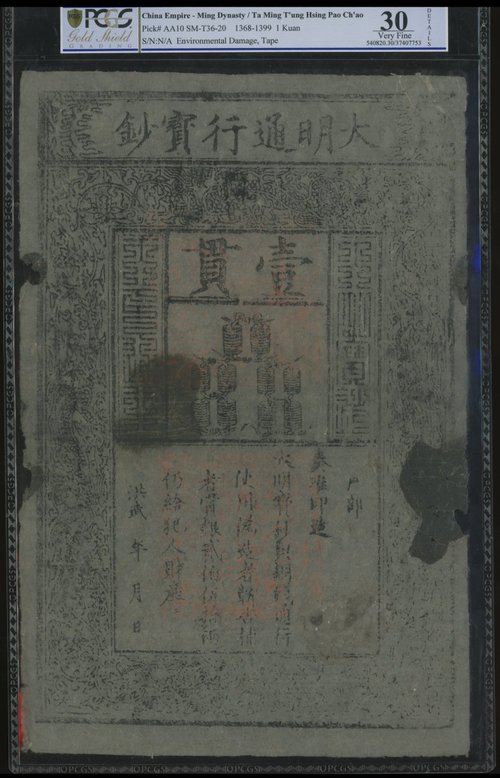 PCGS
Gold Shield
GRADING
China Empire - Ming Dynasty / Ta Ming T'ung Hsing Pao Ch'ao
Pick# AA10 SM-T36-20 1368-1399 1 Kuan
S/N:N/A Environmental Damage, Tape
30
Very Fine
540820.30/37407753
DETAILS
大明通行寶鈔
壹貫
戶部
奏准印造
大明寶鈔與銅錢通行
使用偽造者斬告捕
者賞銀貳佰伍拾兩
仍給犯人財產
洪武 年 月 日